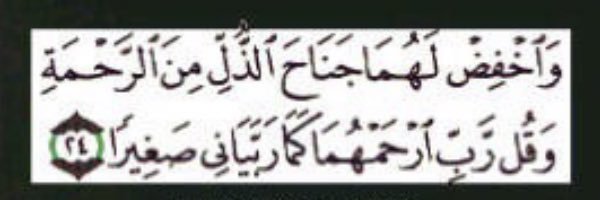 وَٱخْفِضْ لَهُمَا جَنَاحَ ٱلذُّلِّ مِنَ ٱلرَّحْمَةِ
وَقُل رَّبِّ ٱرْحَمْهُمَا كَمَا رَبَّيَانِى صَغِيرًا ٢٤